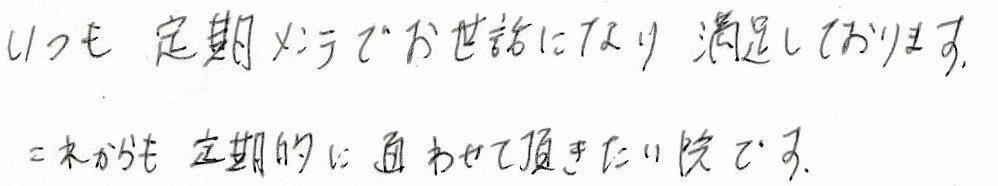 いつも 定期メンテでお世話になり 満足しております.
これからも 定期的に 通わせて頂きたい院です.